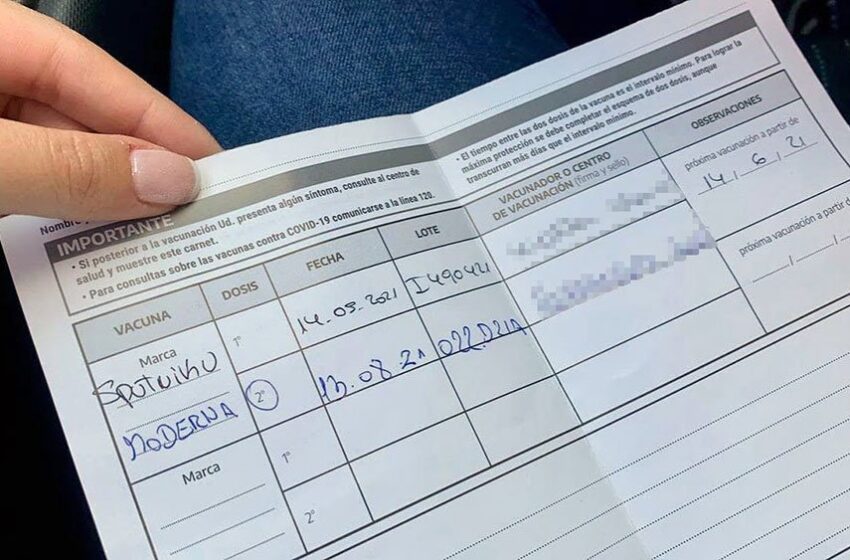 Nombre
IMPORTANTE
• Si posterior a la vacunación Ud. presenta algún síntoma, consulte al centro de
salud y muestre este carnet.
• Para consultas sobre las vacunas contra COVID-19 comunicarse a la línea 120.
• El tiempo entre las dos dosis de la vacuna es el intervalo mínimo. Para lograr la
máxima protección se debe completar el esquema de dos dosis, aunque
transcurran más días que el intervalo mínimo.
VACUNA DOSIS FECHA LOTE VACUNADOR O CENTRO
DE VACUNACIÓN (firma y sello) OBSERVACIONES
Marca
1° 14.05.2021 I490421 próxima vacunación a partir de
14, 6, 21
MODERNA 2° 13.08.21 022D21A próxima vacunación a partir d
Marca
1°
2°